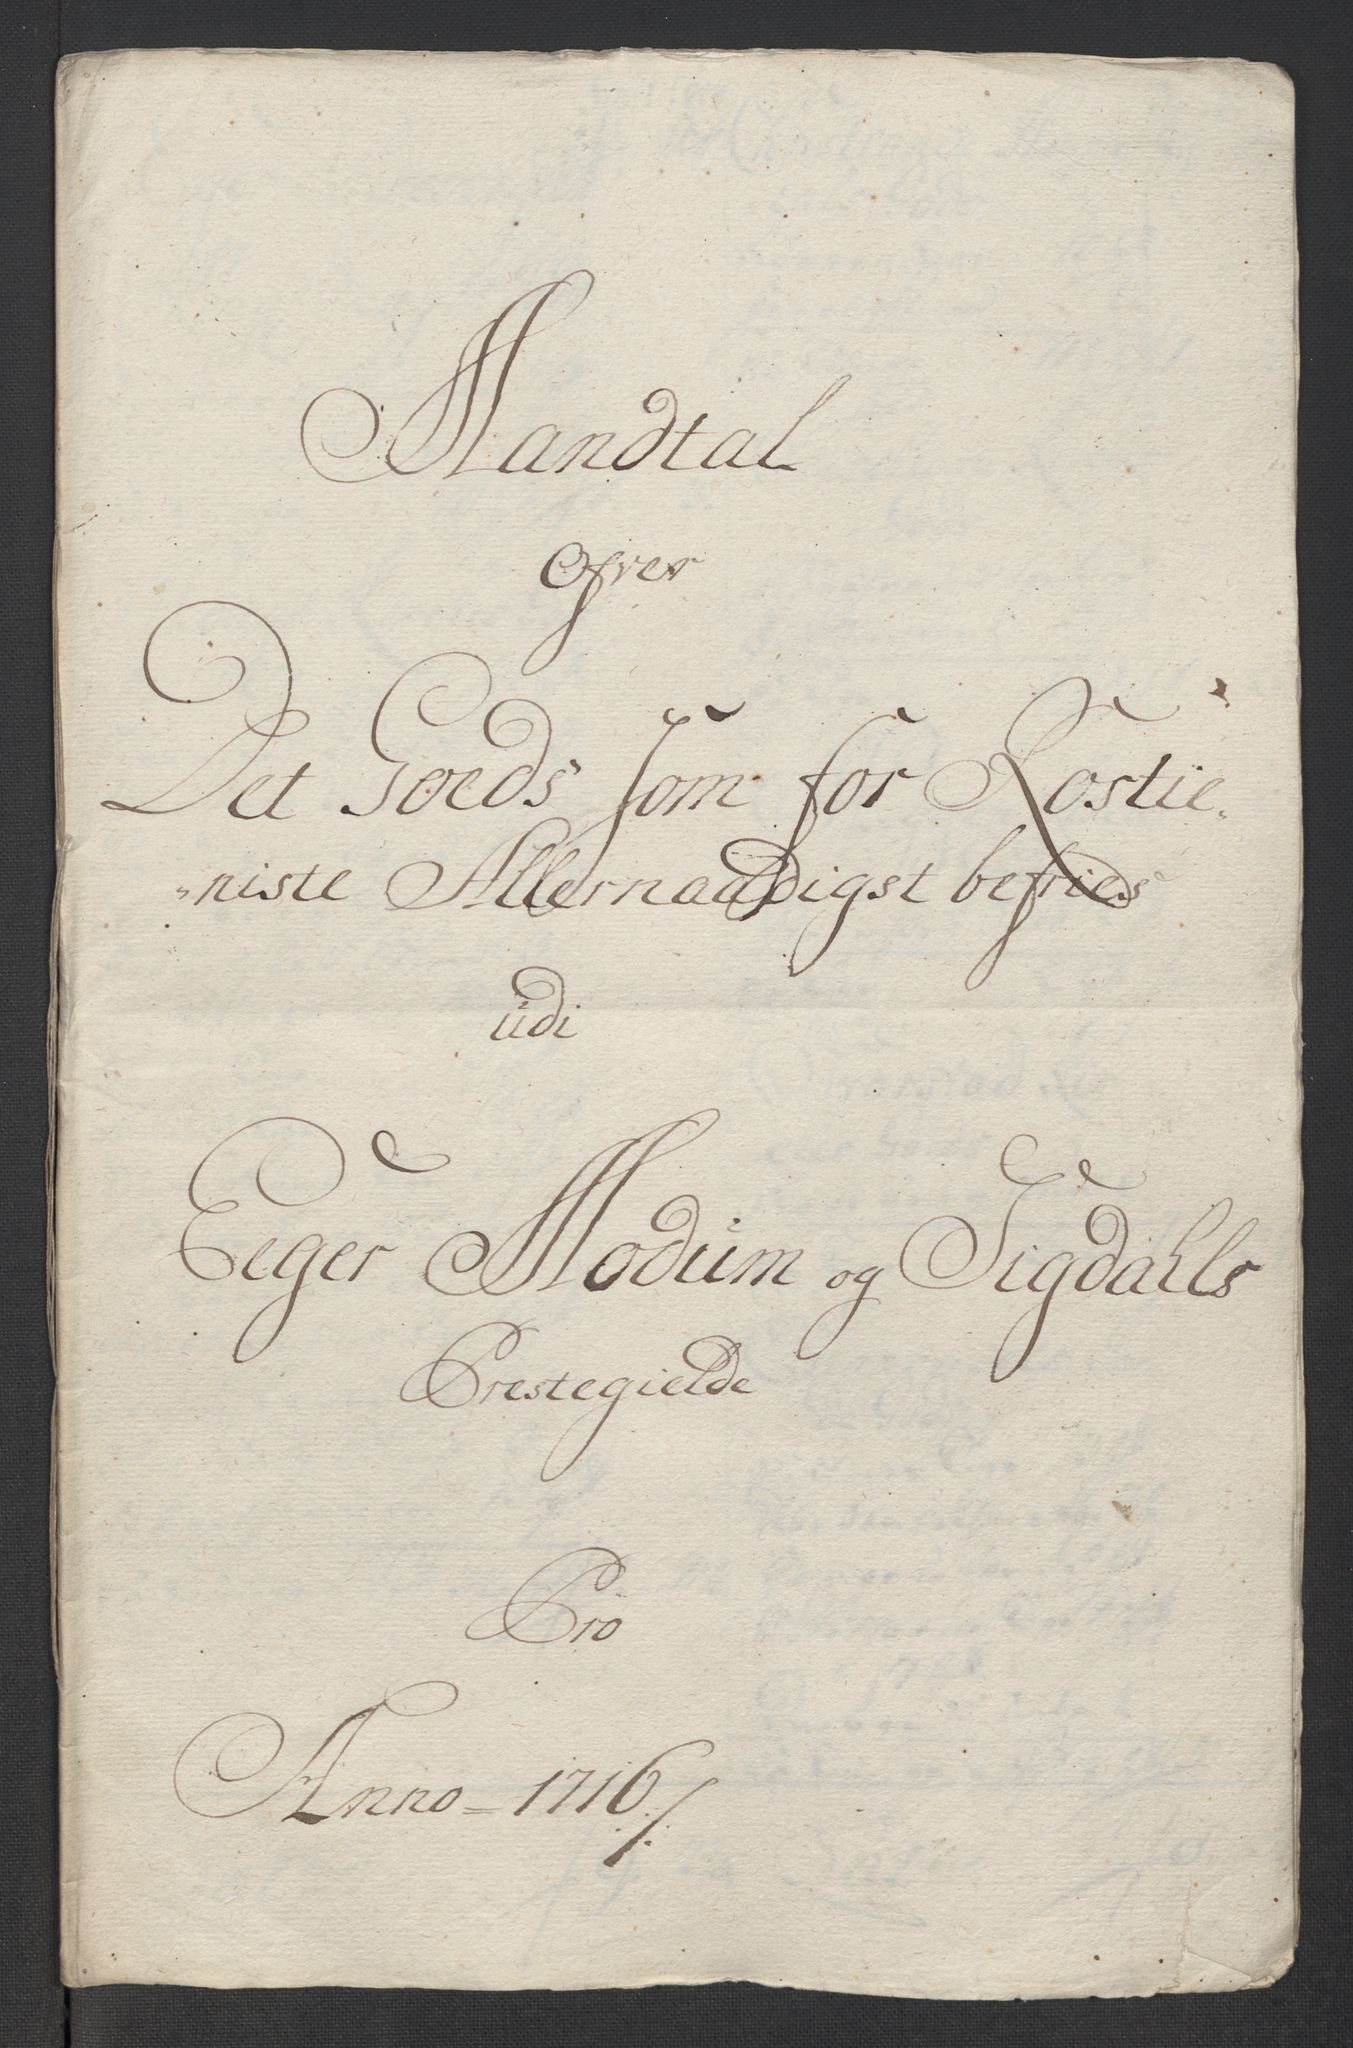 Mandtal
Ofver
Det Goeds som for Rostie,
"niste Allernaadigst befries
udi
Eeger Modum og Sigdahls
Prestegielde
Pro
Anno = 1716 ./.